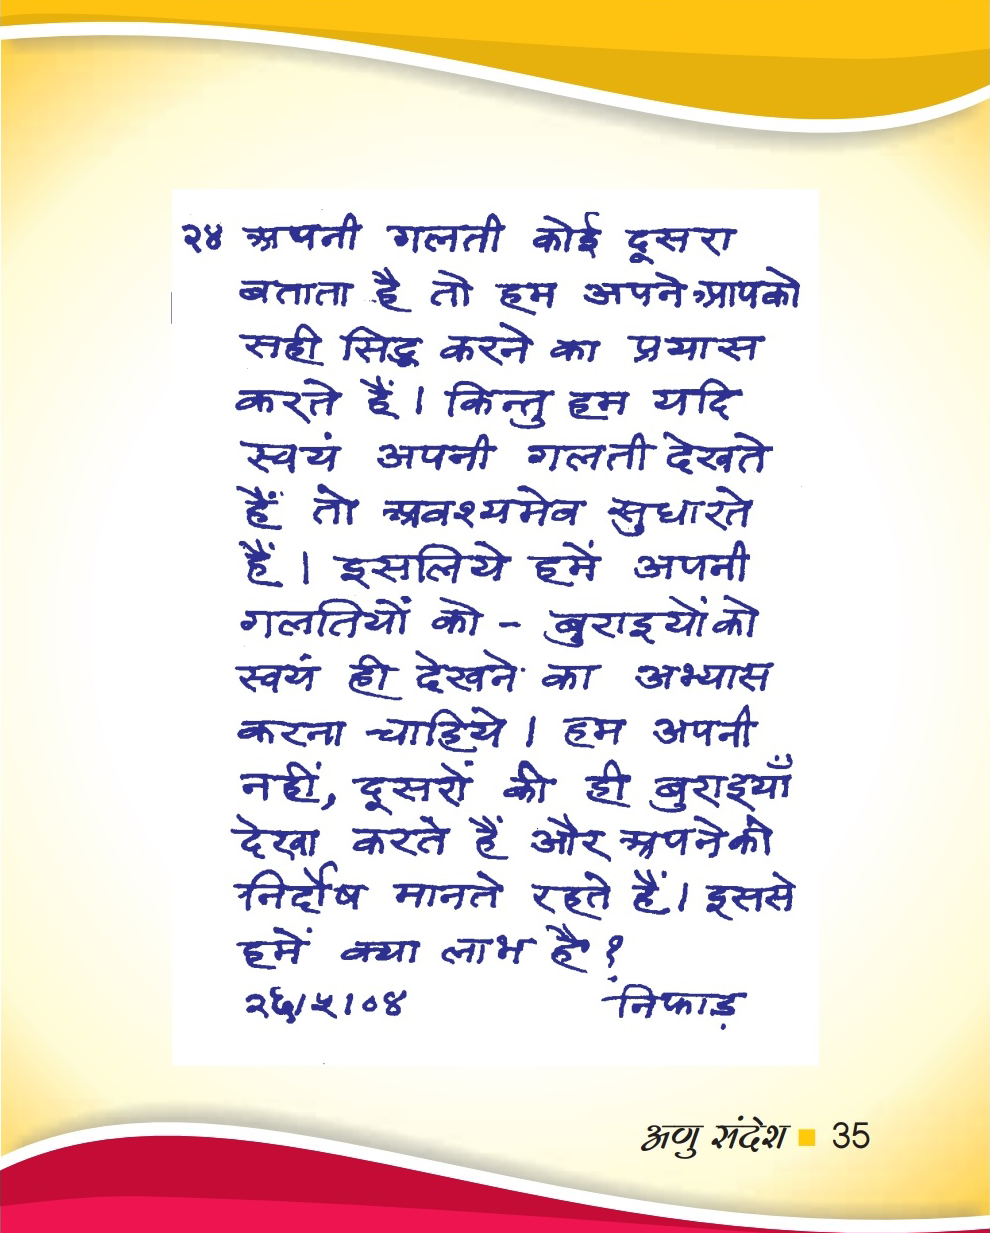 २४ अपनी गलती कोई दूसरा
बताता है तो हम अपने आपको
सही सिद्ध करने का प्रयास
करते हैं। किन्तु हम यदि
स्वयं अपनी गलती देखते
हैं तो अवश्यमेव सुधारते
हैं। इसलिये हमें अपनी
गलतियों को - बुराइयों को
स्वयं ही देखने का अभ्यास
करना चाहिये। हम अपनी
नहीं, दूसरों की ही बुराइयाँ
देखा करते हैं और अपने को
निर्दोष मानते रहते हैं। इससे
हमें क्या लाभ है?
२६।५।०४ निफाड़
अणु संदेश ■ 35